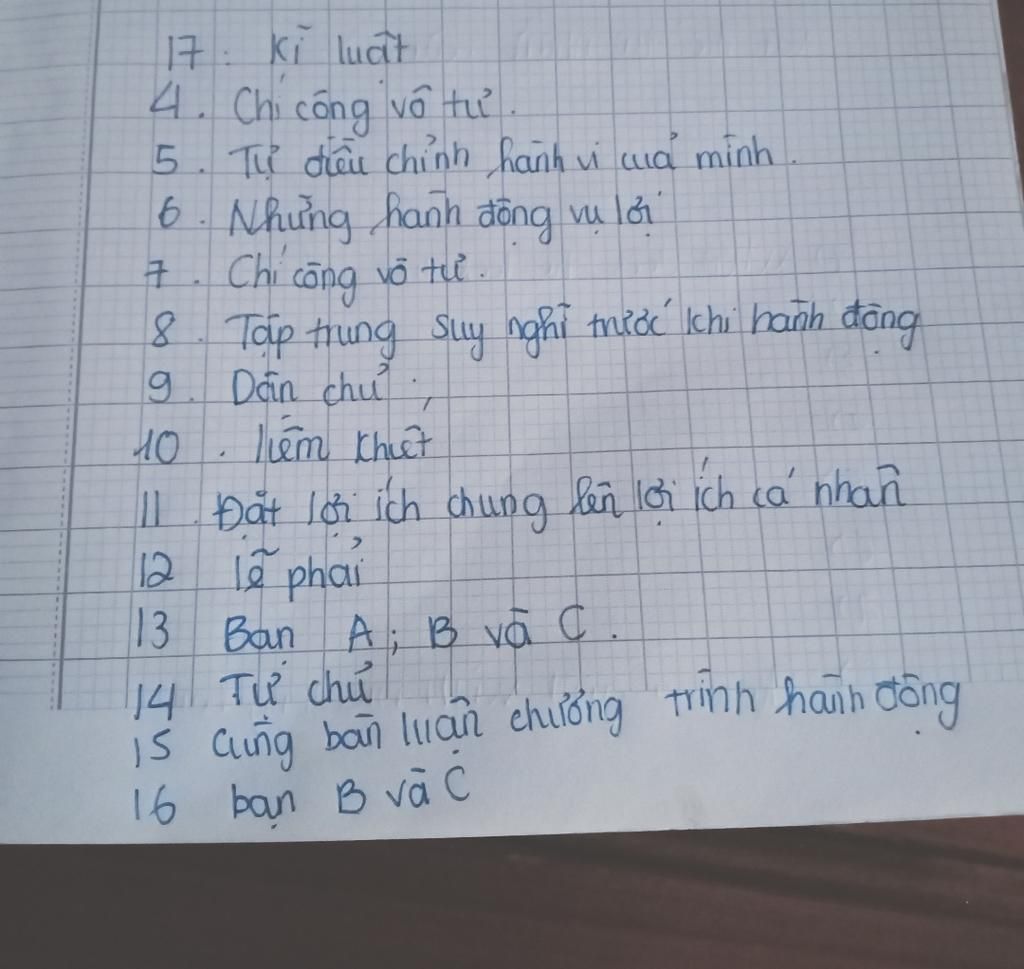 17. Kĩ luật
4. Chí công vô tư.
5. Tự điều chỉnh hành vi của mình.
6. Những hành động vụ lợi
7. Chí công vô tư.
8. Tập trung suy nghĩ trước khi hành động
9. Dân chủ;
10. liêm khiết
11. Đặt lợi ích chung lên lợi ích cá nhân
12 lẽ phải
13 Bạn A; B và C.
14 Tự chủ
15 Cùng bàn luận chương trình hành động
16 bạn B và C